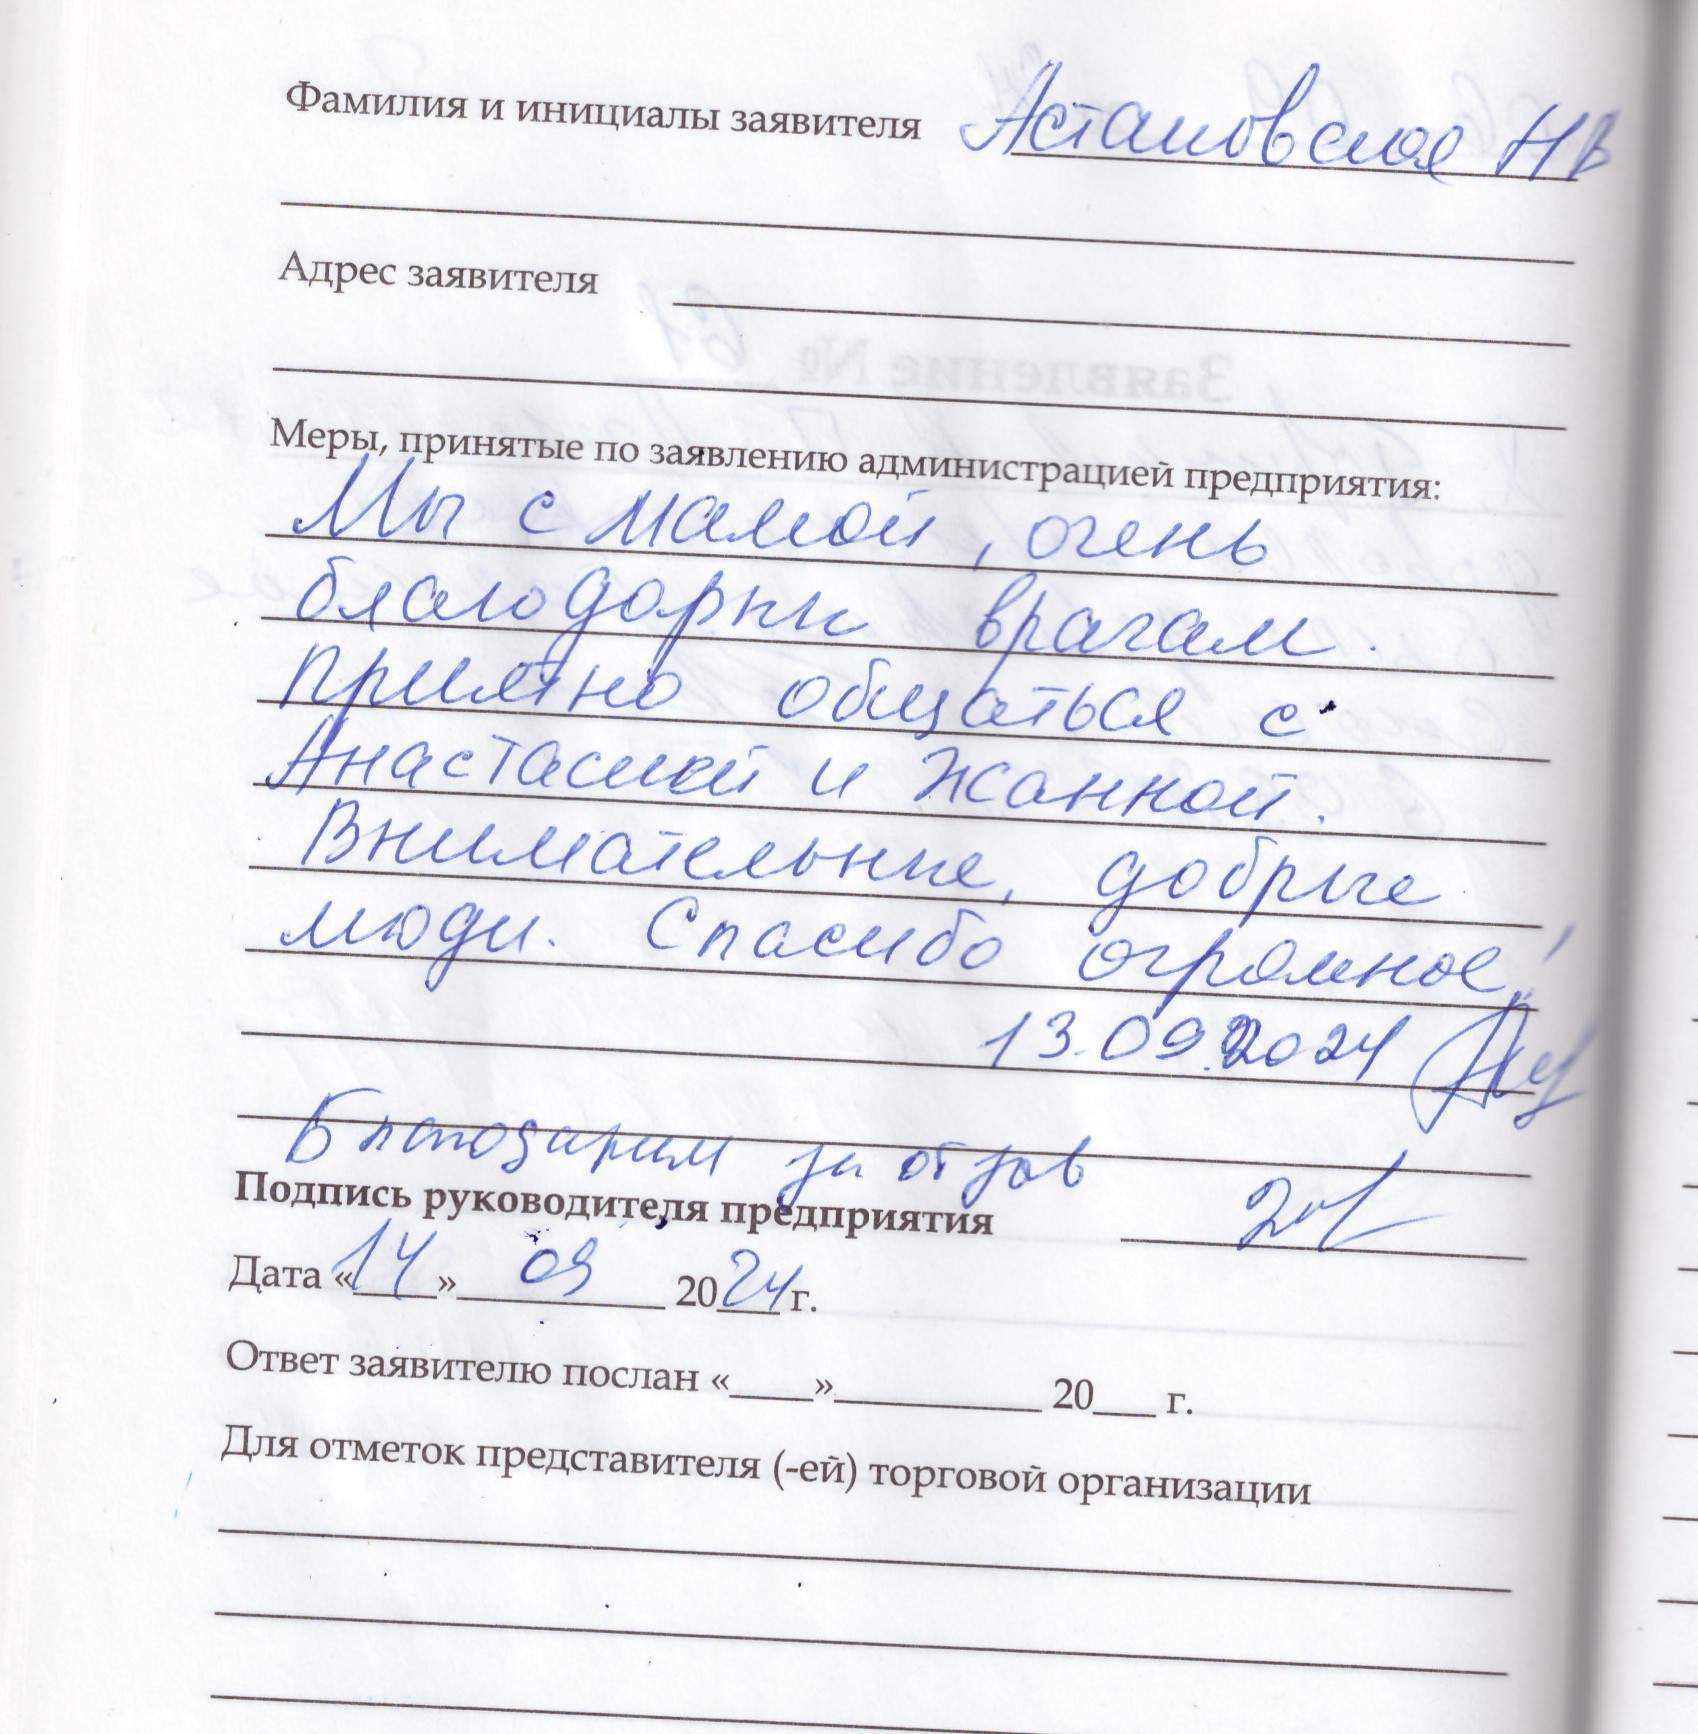 Фамилия и инициалы заявителя Астановская НВ
Адрес заявителя
Меры, принятые по заявлению администрацией предприятия:
Мы с мамой, очень
благодарны врачам.
Приятно общаться с
Анастасией и Жанной.
Внимательные, добрые
люди. Спасибо огромное!
13.09.2024
Благодарим за отзыв
Подпись руководителя предприятия
Дата «14» 09 2024 г.
Ответ заявителю послан «____»__________ 20___ г.
Для отметок представителя (-ей) торговой организации